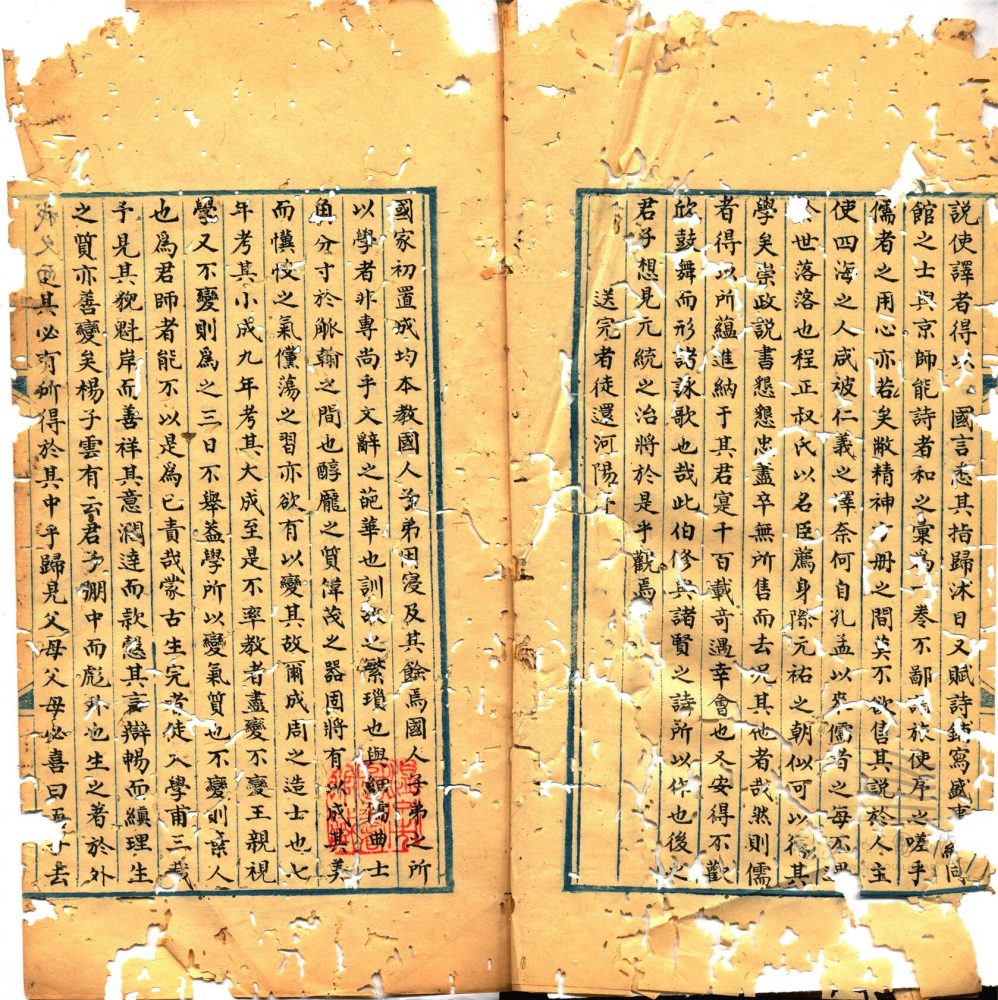 說使譯者得以國言悉其指歸沐日又賦詩鋪寫盛事
館之士與京師能詩者和之彙為一卷不鄙謂旅使序之嗟乎
儒者之用心亦若矣敝精神方冊之間莫不欲售其說於人主
使四海之人咸被仁義之澤奈何自孔孟以來儒者之每不遇
於世落落也程正叔氏以名臣薦身際元祐之朝似可以行其
學矣崇政說書懇懇忠盡卒無所售而去况其他者哉然則儒
者得以所蘊進納于其君寔千百載奇遇幸會也又安得不歡
欣鼓舞而形諸詠歌也哉此伯修與諸賢之詩所以作也後之
君子想見元統之治將於是乎觀焉
送完者徒還河陽序
國家初置成均本教國人子弟因寖及其餘焉國人子弟之所
以學者非專尚乎文辭之葩華也訓故之繁瑣也與細儒曲士
角分寸於觚翰之間也醇龐之質渾茂之器固將有以成其美
而慓悍之氣儻蕩之習亦欲有以變其故爾成周之造士也七
年考其小成九年考其大成至是不率教者盡變不變王親視
學又不變則為之三日不舉蓋學所以變氣質也不變則棄人
也為君師者能不以是為已責哉蒙古生完者徒入學甫三載
予見其貌魁岸而善祥其意濶達而款慤其言辯暢而縝理生
之質亦善變矣楊子雲有云君子弸中而彪外也生之著於外
其必有所得於其中乎歸見父母父母必喜曰吾子去